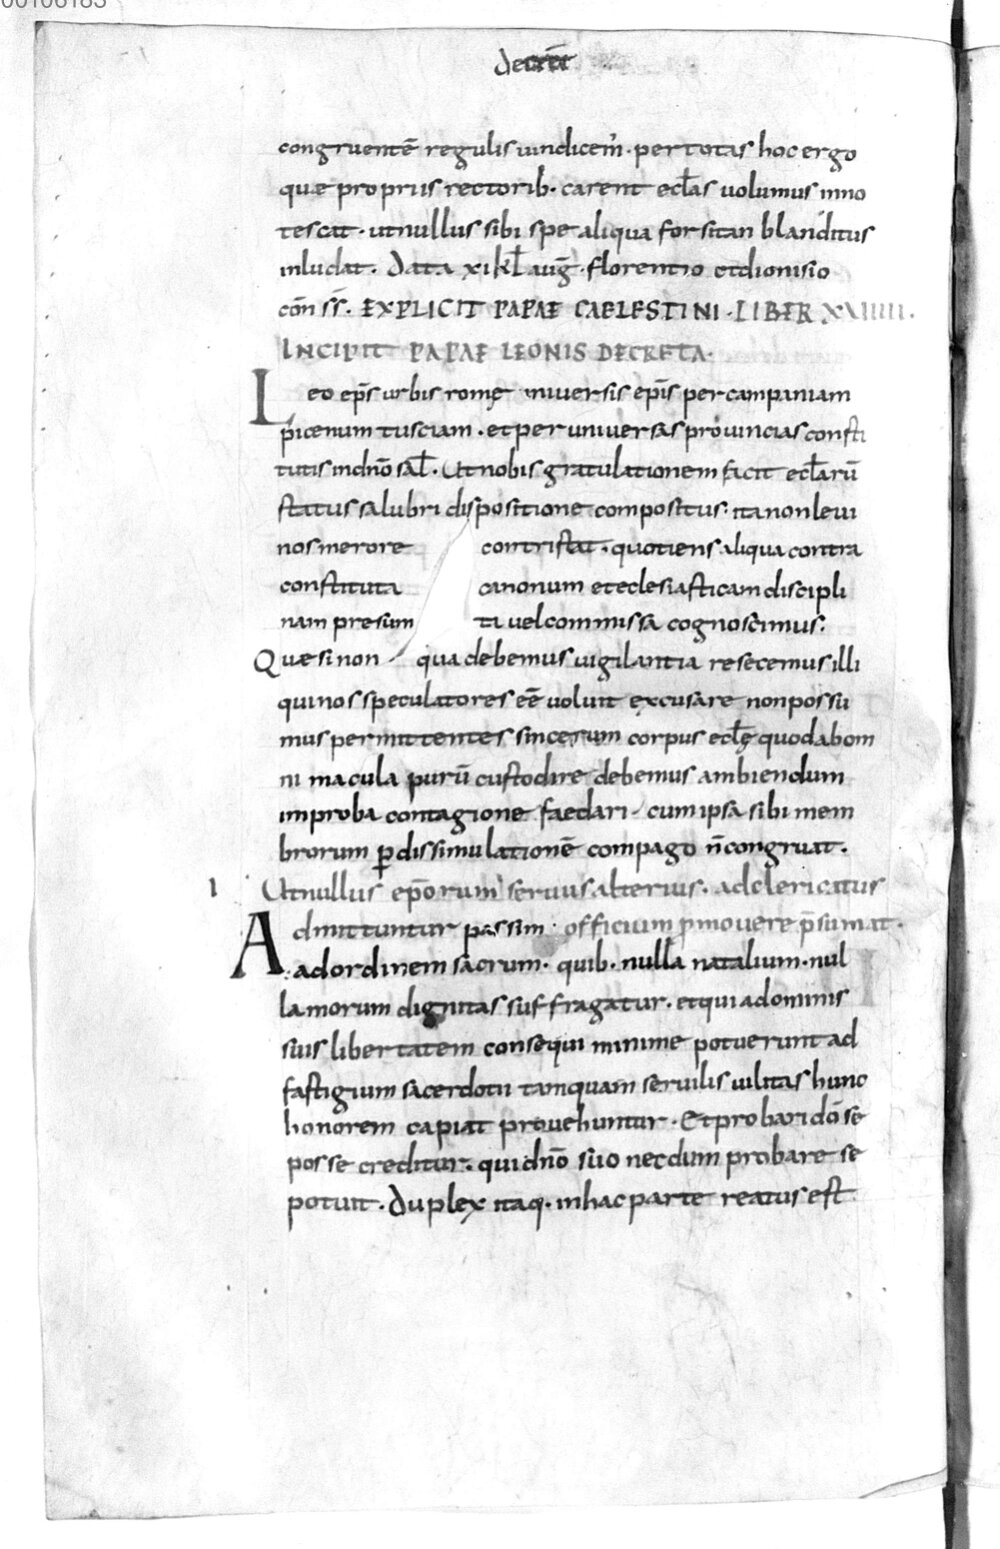 decret
congruentē regulis uindicem̄ · per totas hoc ergo
quæ propriis rectorib· carent eclas uolumus inno
tescat · ut nullus sibi spe aliqua forsitan blanditus
inludat · Data xi kł aug̅ · florentio et dionisio
con̄ ss̄ · EXPLICIT PAPAE CAELESTINI · LIBER
INCIPIT PAPAE LEONIS DECRETA ·
Leo ep̄s urbis romę uniuersis ep̄is per campaniam
picenum tusciam · et per uniuersas prouincias consti
tutis in dn̄o sał · Ut nobis gratulationem facit ecłarū
status salubri dispositione compositus · ita non leui
nos merore contristat · quotiens aliqua contra
constituta canonum et eclesiasticam discipli
nam presumti uel commissa cognoscimus ·
Quæ si non qua debemus uigilantia resecemus illi
qui nos speculatores eē uoluit excusare non possu
mus permittentes sincerum corpus ecłę quod ab om
ni macula purū custodire debemus ambiendum
improba contagione faedari · cum ipsa sibi mem
brorum ꝑ dissimulationē compago n̄ congruat ·
I Ut nullus ep̄orum seruus alterius · ad clericatus
Admittuntur passim · officium p̱mouere p̄sumat ·
ad ordinem sacrum · quib· nulla natalium · nul
la morum dignitas suffragatur · et qui a dominis
suis libertatem consequi minime potuerunt ad
fastigium sacerdotii tanquam seruilis uilitas hunc
honorem capiat prouehuntur · Et probari dō se
posse creditur · qui dn̄o suo necdum probare se
potuit · Duplex itaq· in hac parte reatus est